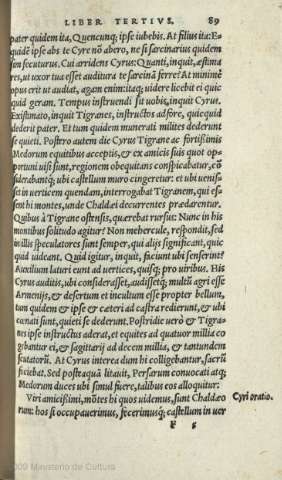 LIBER TERTIVS. 89
pater quidem ita, Quencunq; ipse iubebis. At filius ita: E
quidē ipse abs te Cyre nō abero, ne si sarcinarius quidem
sim secuturus. Cui arridens Cyrus: Quanti, inquit, æstima
res, ut uxor tua esset auditura te sarcinā ferre? At minimē
opus erit ut audiat, agam enim: itaq; uidere licebit ei quic
quid geram. Tempus instruendi sit uobis, inquit Cyrus.
Existimato, inquit Tigranes, instructos adfore, quicquid
dederit pater. Et tum quidem munerati milites dederunt
se quieti. Postro autem die Cyrus Tigrane ac fortissimis
Medorum equitibus acceptis, & ex amicis suis quot op-
portuni uisi sunt, regionem obequitans conspicabatur, cō
siderabatq; ubi castellum muro cingeretur: et ubi uenis-
set in uerticem quendam, interrogabat Tigranem, qui es-
sent hi montes, unde Chaldæi decurrentes prædarentur.
Quibus à Tigrane ostensis, quærebat rursus: Nunc in his
montibus solitudo agitur? Non mehercule, respondit, sed
in illis speculatores sunt semper, qui alijs significant, quic
quid uideant. Quid igitur, inquit, faciunt ubi senserint?
Auxilium laturi eunt ad uertices, quisq; pro uiribus. His
Cyrus auditis, ubi considerasset, audissetq; multū agri esse
Armenijs, & desertum et incultum esse propter bellum,
tum quidem & ipse & cæteri ad castra redierunt, & ubi
cœnati sunt, quieti se dederunt. Postridie uerò & Tigra-
nes ipse instructus aderat, et equites ad quatuor millia co
gebantur ei, & sagittarij ad decem millia, & tantundem
scutatorū. At Cyrus interea dum hi colligebantur, sacrū
faciebat. Sed postquā litauit, Persarum conuocati atq;
Medorum duces ubi simul fuere, talibus eos alloquitur:
Viri amicissimi, mōtes hi quos uidemus, sunt Chaldæo
Cyri oratio.
rum: hos si occupauerimus, fecerimusq; castellum in uer
F 5
Ministerio de Cultura